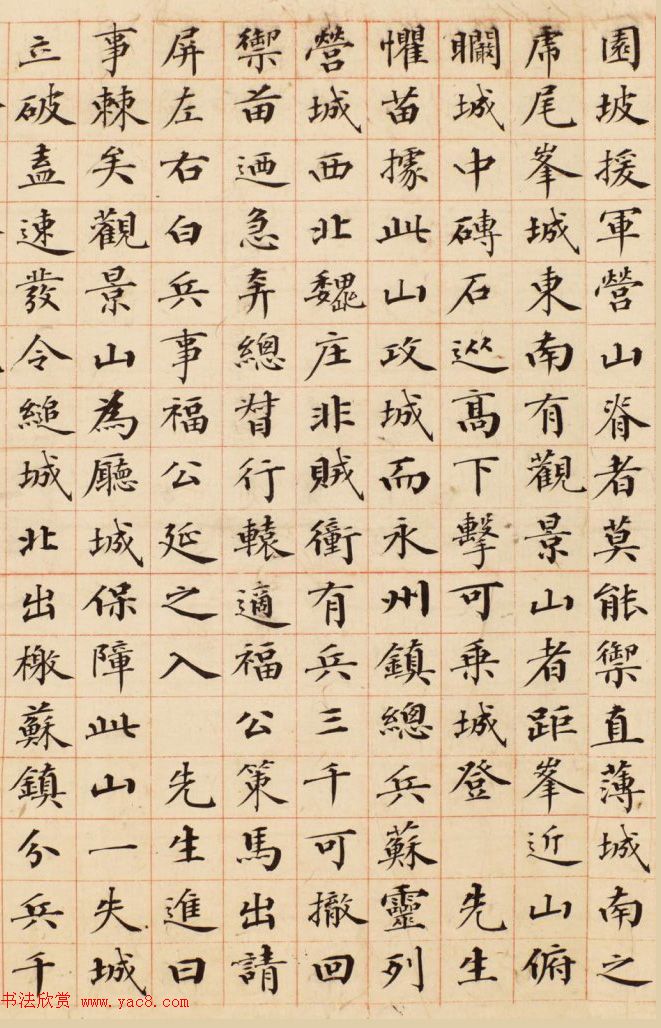 園坡援軍營山脊者莫能禦直薄城南之
虎尾峯城東南有觀景山者距峯近山俯
瞷城中磚石巡高下擊可乗城登 先生
懼苗據此山攻城而永州鎮總兵蘇靈列
營城西北魏庄非賊衝有兵三千可撤回
禦苗迺急奔總督行轅適福公策馬出請
屏左右白兵事福公延之入 先生進曰
事棘矣觀景山為廳城保障此山一失城
立破盍速發令縋城北出檄蘇鎮分兵千
书法欣赏 www.yac8.com